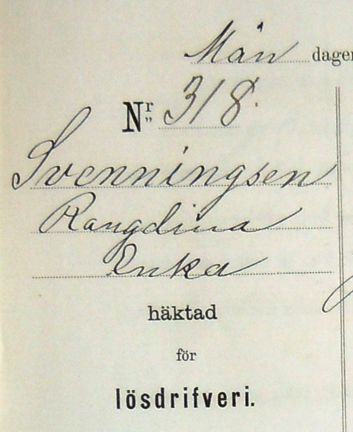 Mån dagen
Nr 318.
Svenningsen
Rangdina
Enka
häktad
för
lösdrifveri.